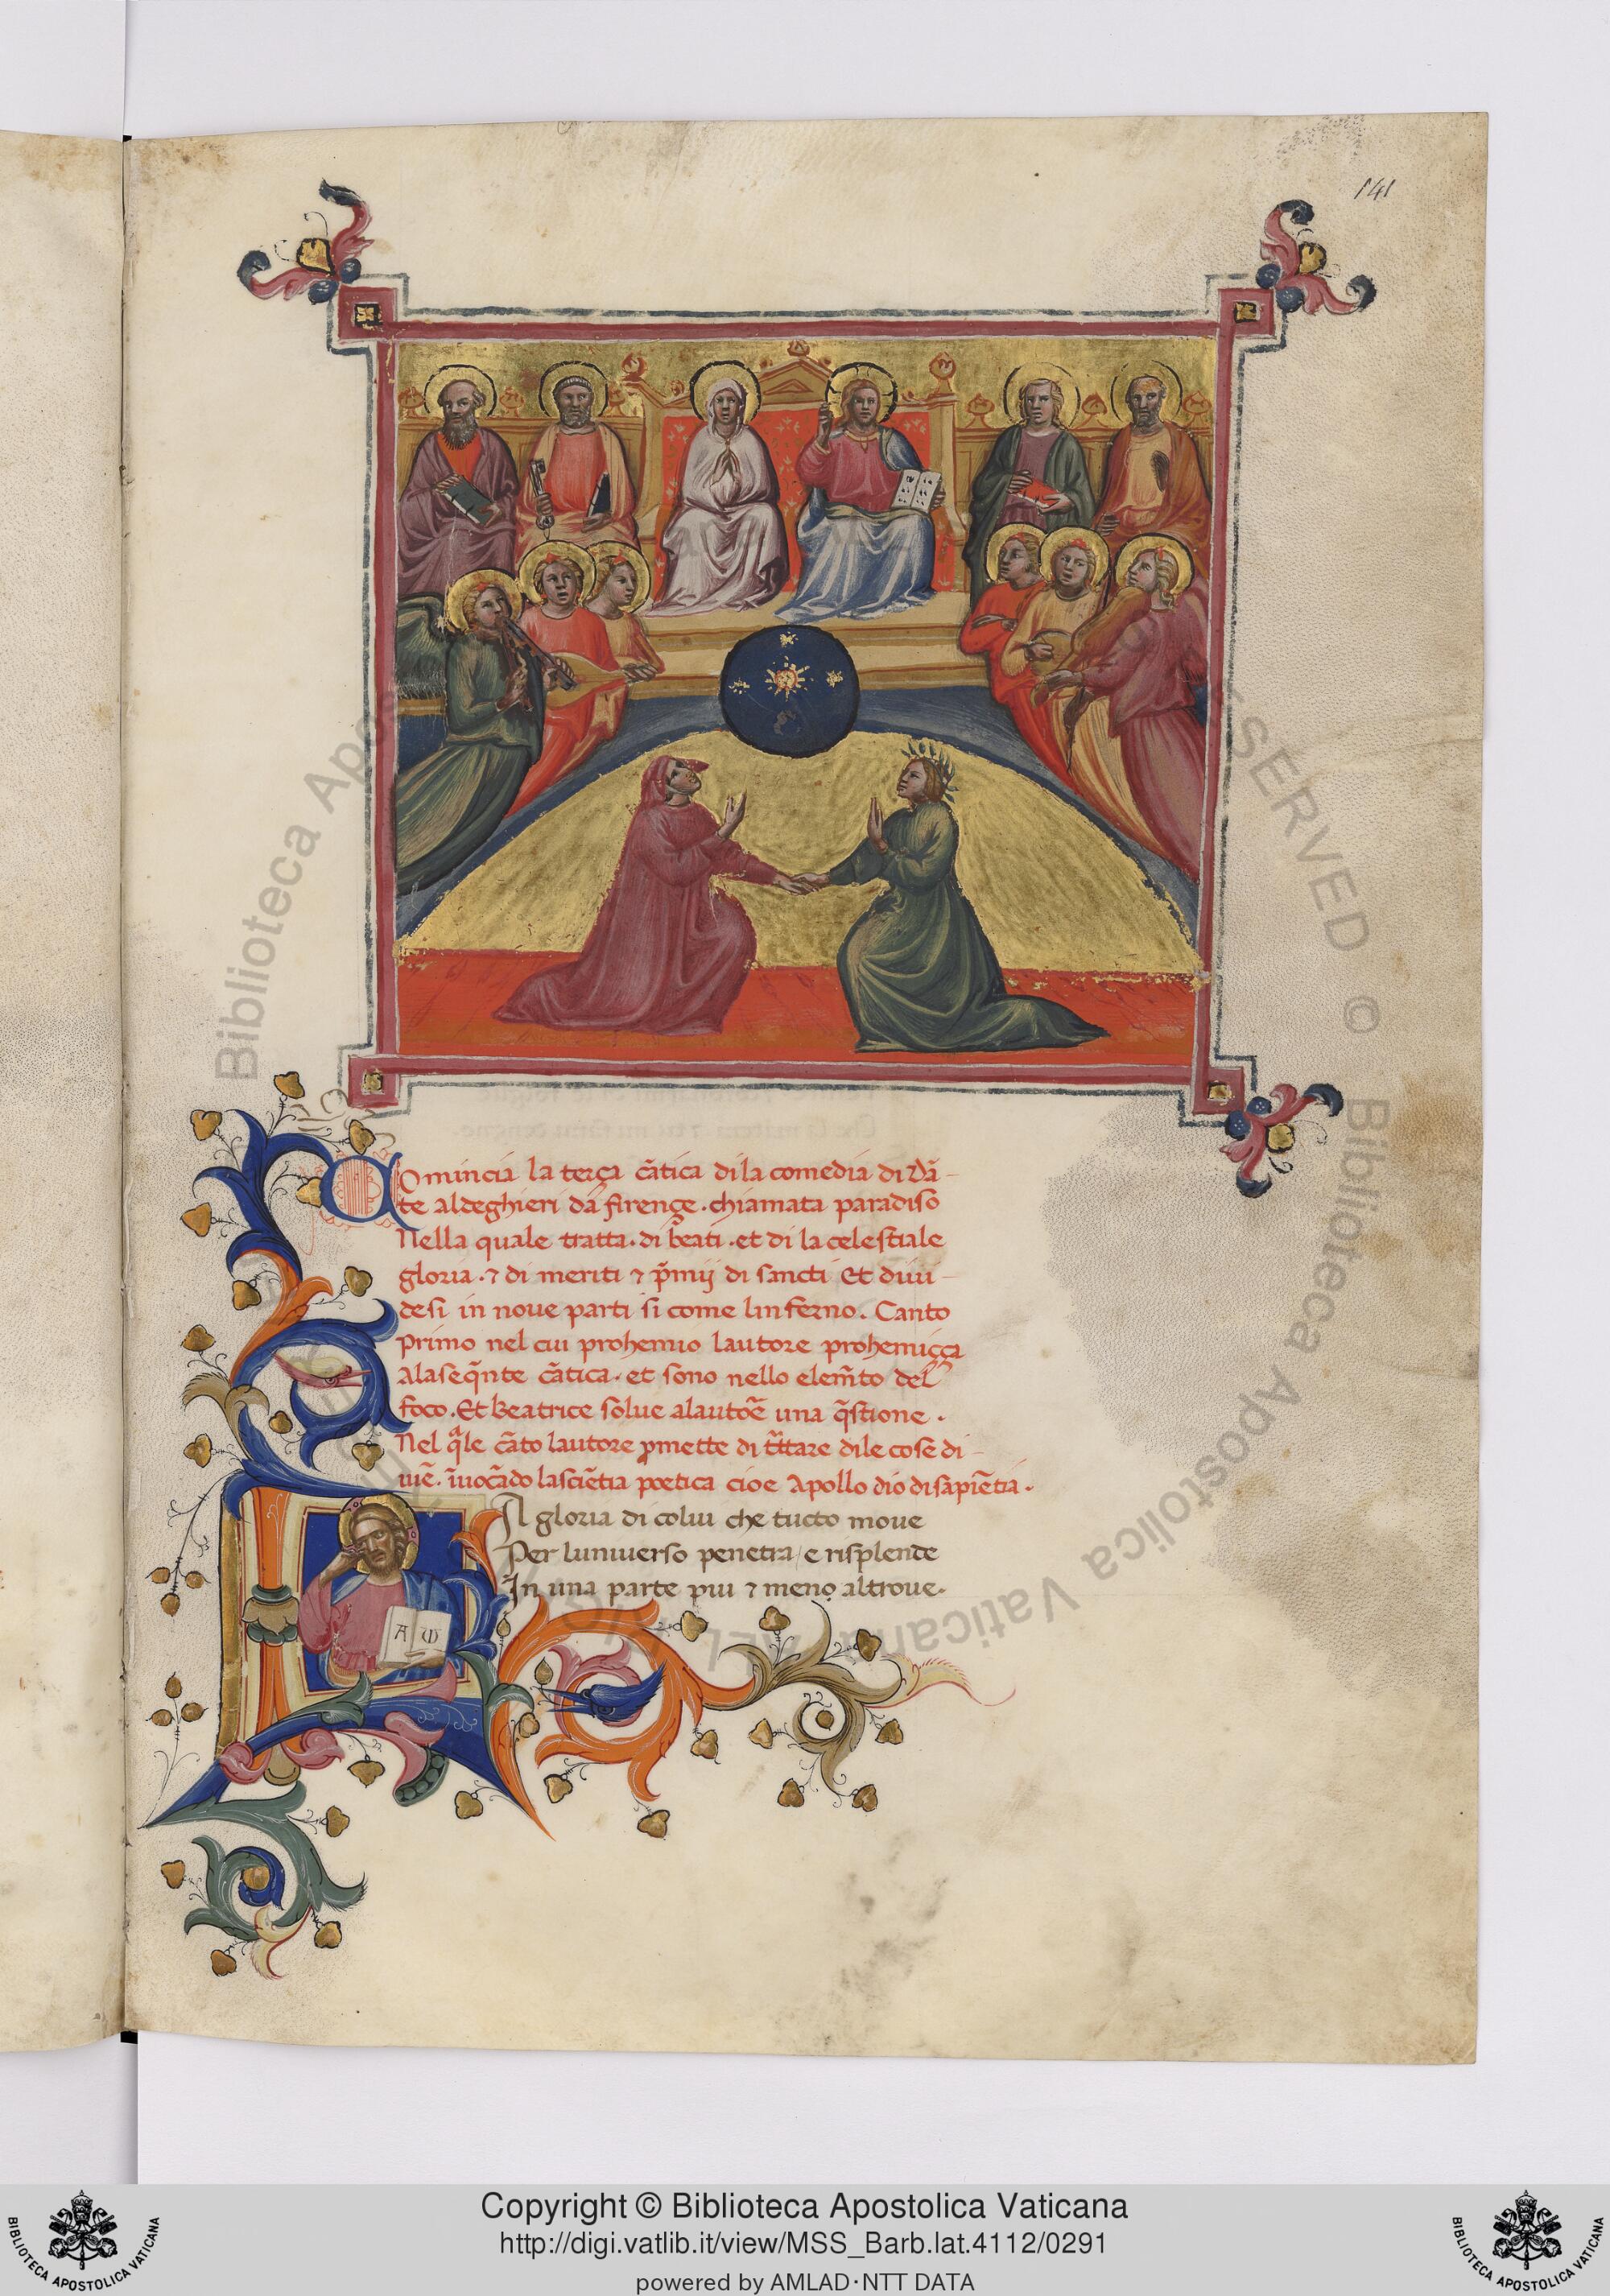 141
Comincia la terça cãtica di la comedia di Dã-
te aldeghieri dã firençe · chiamata paradiso
Nella quale tratta · di beati · et di la celestiale
gloria · ⁊ di meriti ⁊ p̃mij di sancti Et diui-
desi in noue parti si come linferno. Canto
Primo nel cui prohemio lautore prohemiçça
ala seq̃nte cãtica · et sono nello elem̃to del
foco · Et beatrice solue alautoẽ una q̃stione ·
Nel q̃le cãto lautore pmette di t̃ttare dile cose di-
uiẽ · ĩuocãdo la sciẽtia poetica cioe Apollo dio di sapiẽtia ·
LA gloria di colui che tucto moue
Per luniuerso penetra / e risplende
In una parte piu ⁊ meno altroue.
A ω
Biblioteca Apostolica Vaticana
Copyright © Biblioteca Apostolica Vaticana
http://digi.vatlib.it/view/MSS_Barb.lat.4112/0291
powered by AMLAD·NTT DATA
BIBLIOTECA APOSTOLICA VATICANA
BIBLIOTECA APOSTOLICA VATICANA